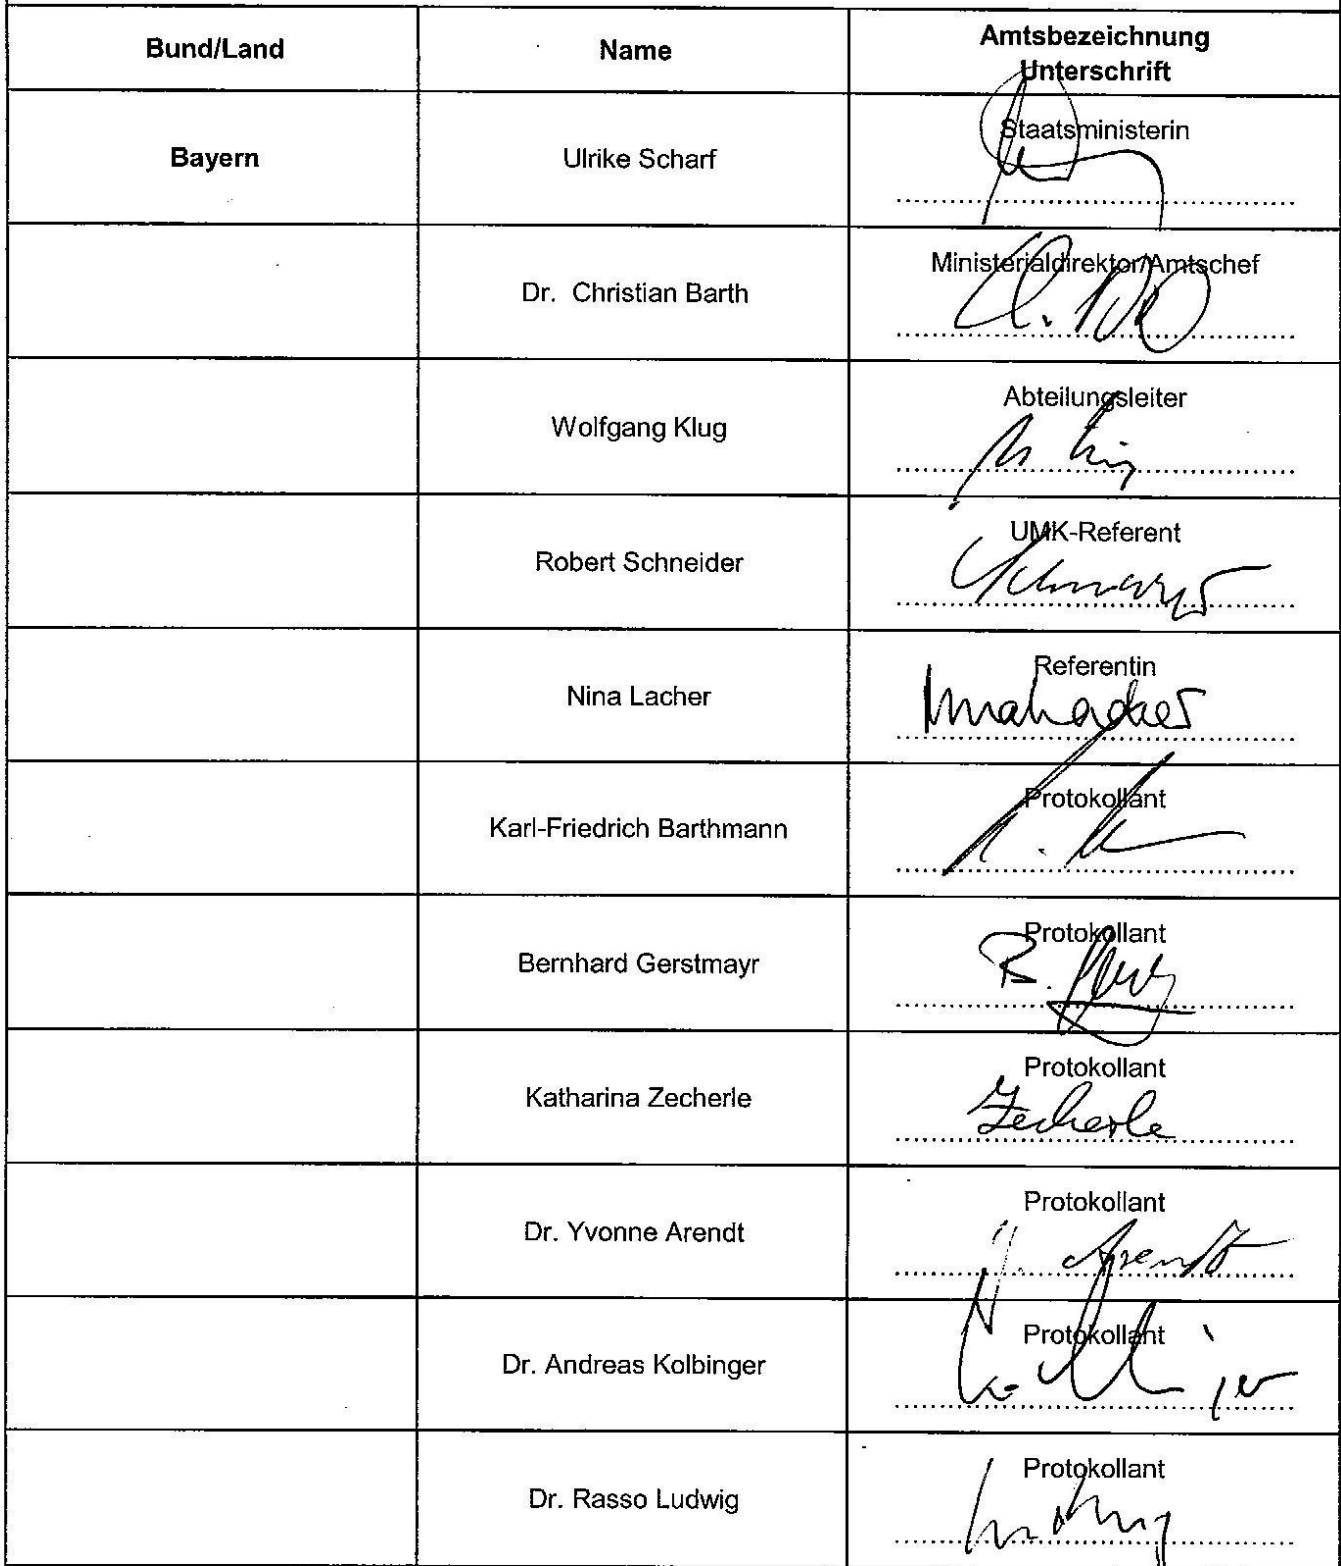 Bund/Land
Name
Amtsbezeichnung
Unterschrift
Bayern
Ulrike Scharf
Staatsministerin
Dr. Christian Barth
Ministerialdirektor/Amtschef
Wolfgang Klug
Abteilungsleiter
Robert Schneider
UMK-Referent
Nina Lacher
Referentin
Karl-Friedrich Barthmann
Protokollant
Bernhard Gerstmayr
Protokollant
Katharina Zecherle
Protokollant
Zecherle
Dr. Yvonne Arendt
Protokollant
Y. Arendt
Dr. Andreas Kolbinger
Protokollant
Dr. Rasso Ludwig
Protokollant